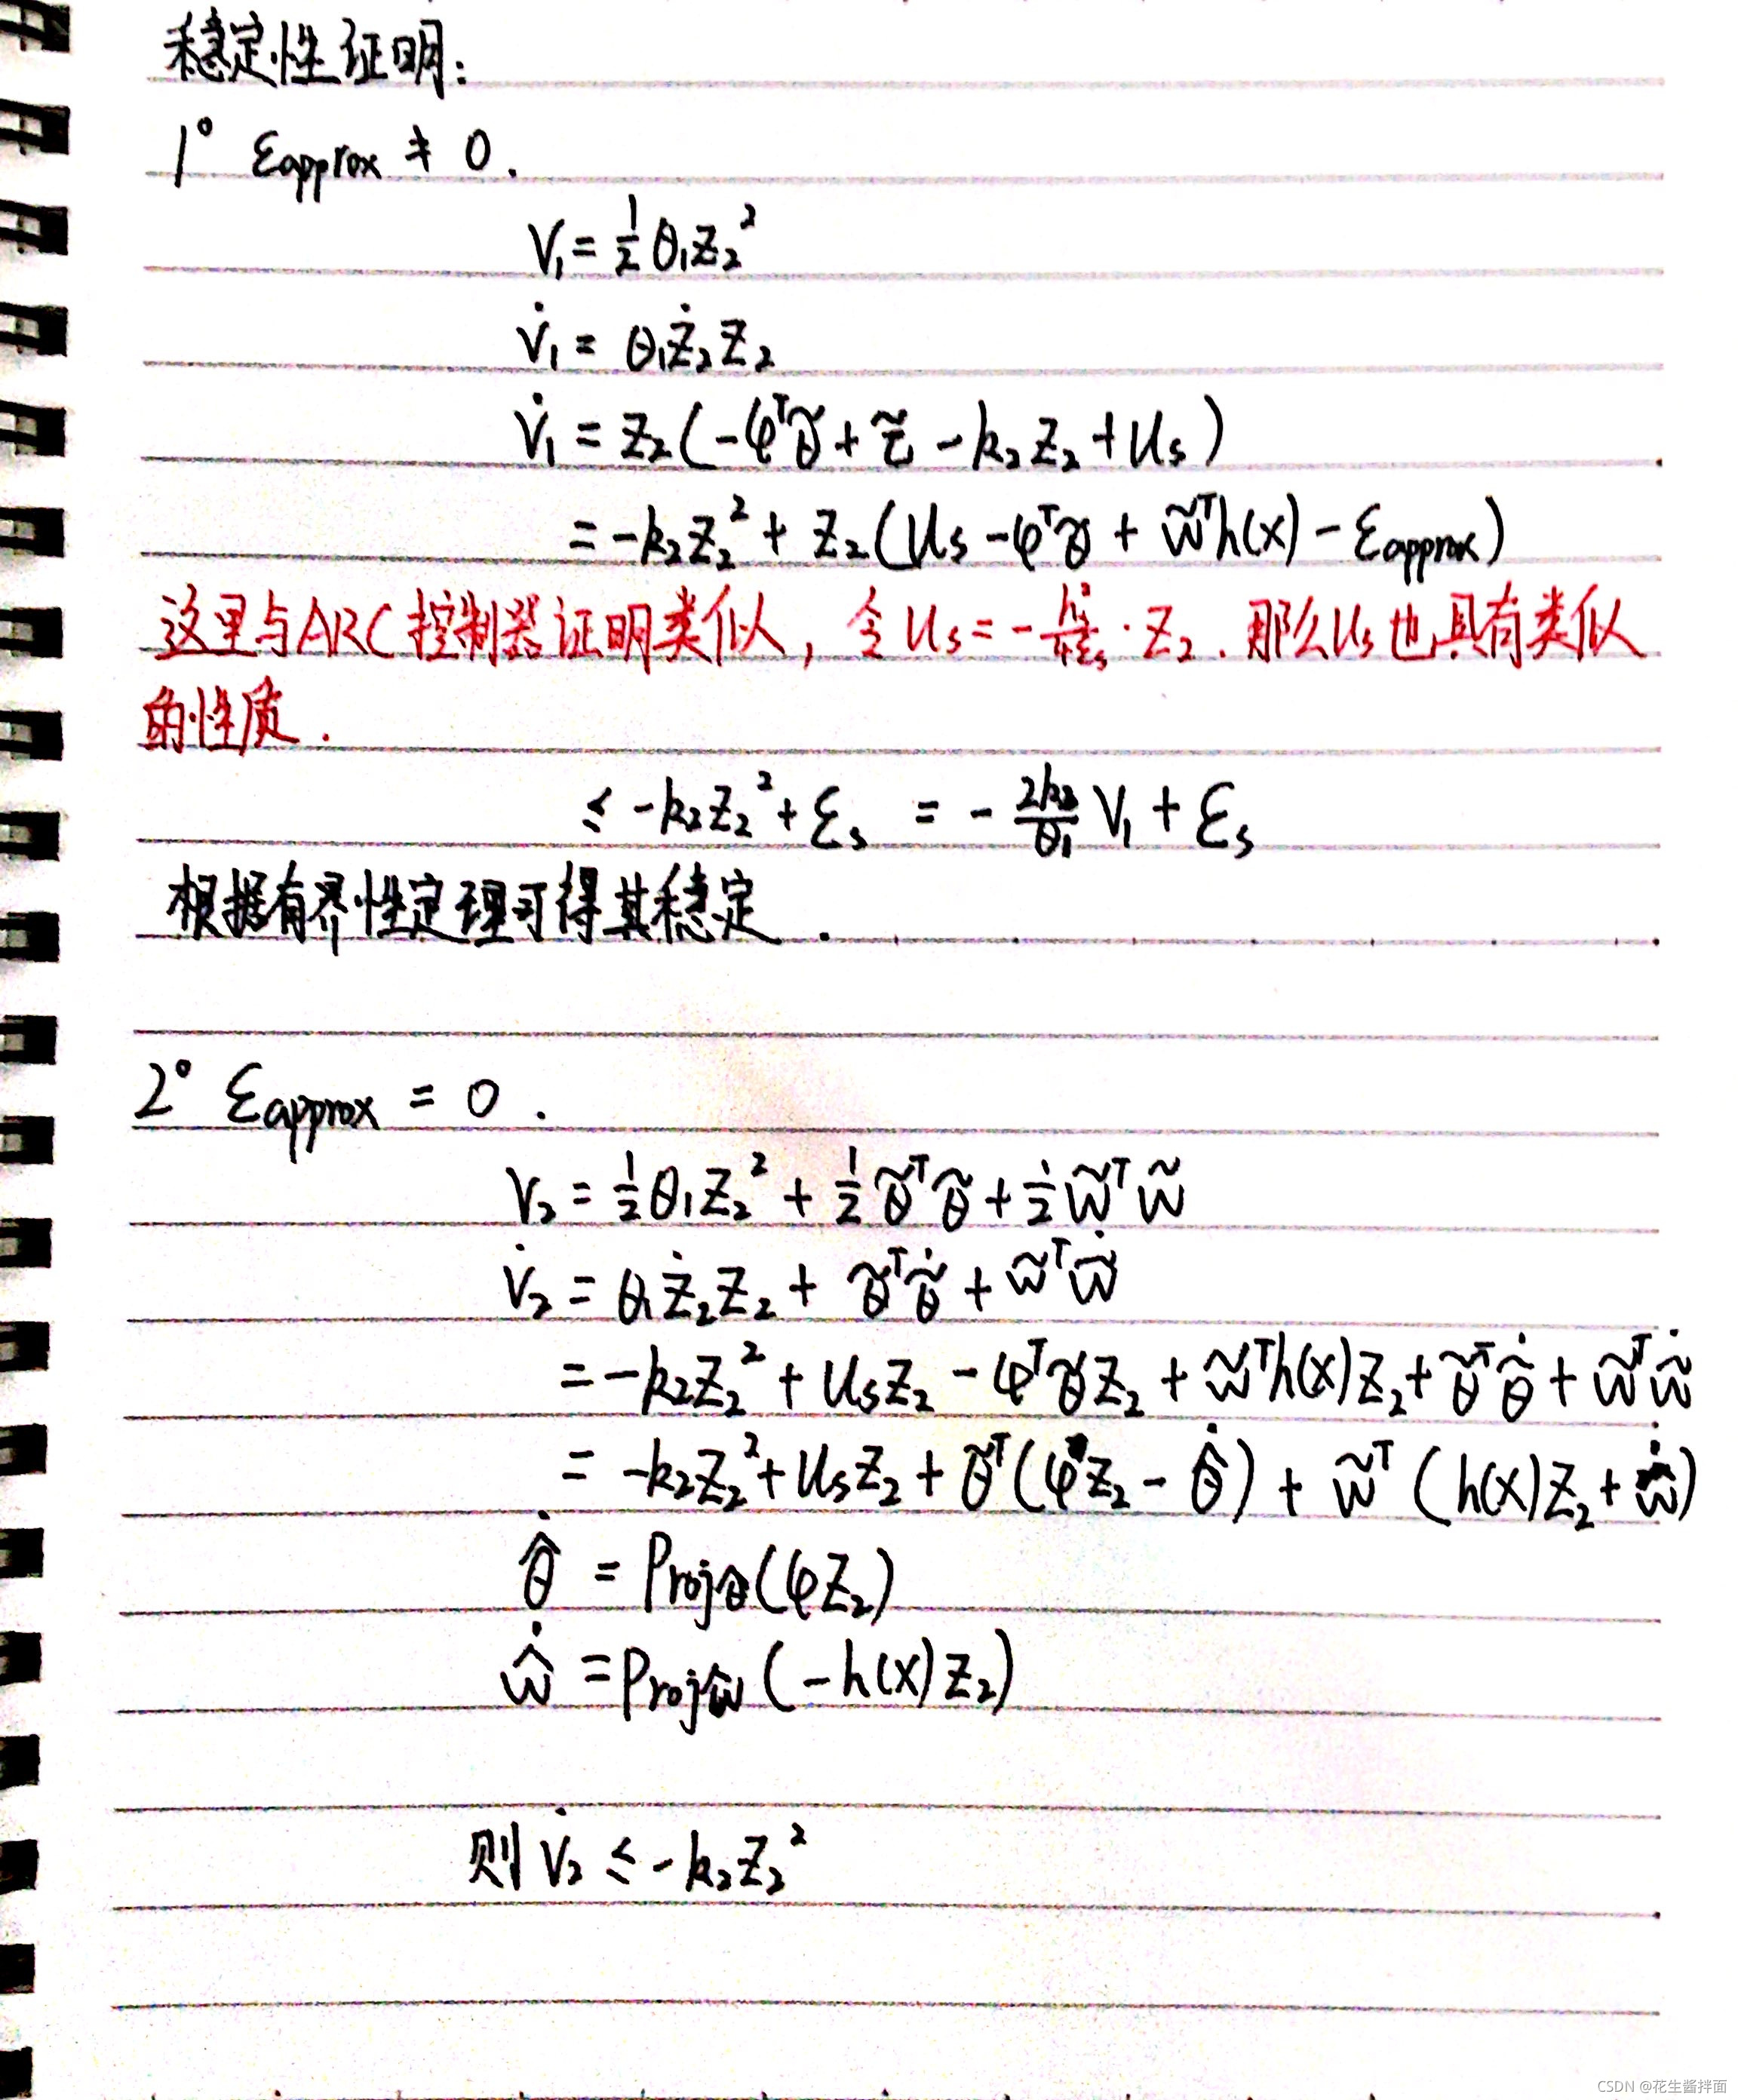 稳定性证明:
1° εapprox ≠ 0.
V₁ = 1/2 θ₁z₂²
V̇₁ = θ₁ż₂z₂
V̇₁ = z₂(-φᵀθ̃ + τ̃ - k₂z₂ + uₛ)
= -k₂z₂² + z₂(uₛ - φᵀθ̃ + w̃ᵀh(x) - εapprox)
这里与ARC控制器证明类似, 令 uₛ = - /4εₛ · z₂. 那么uₛ也具有类似
的性质.
≤ -k₂z₂² + εₛ = - 2k₂/θ₁ V₁ + εₛ
根据有界性定理可得其稳定.
2° εapprox = 0.
V₂ = 1/2 θ₁z₂² + 1/2 θ̃ᵀθ̃ + 1/2 w̃ᵀw̃
V̇₂ = θ₁ż₂z₂ + θ̃ᵀθ̃̇ + w̃ᵀw̃̇
= -k₂z₂² + uₛz₂ - φᵀθ̃z₂ + w̃ᵀh(x)z₂ + θ̃ᵀθ̃̇ + w̃ᵀw̃̇
= -k₂z₂² + uₛz₂ + θ̃ᵀ(φz₂ - θ̂̇) + w̃ᵀ(h(x)z₂ + ŵ̇)
θ̂̇ = Projθ̂(φz₂)
ŵ̇ = Projŵ(-h(x)z₂)
则 V̇₂ ≤ -k₂z₂²
CSDN @花生酱拌面